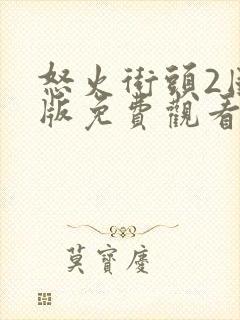 怒火街頭2
版免費觀看
莫寶慶